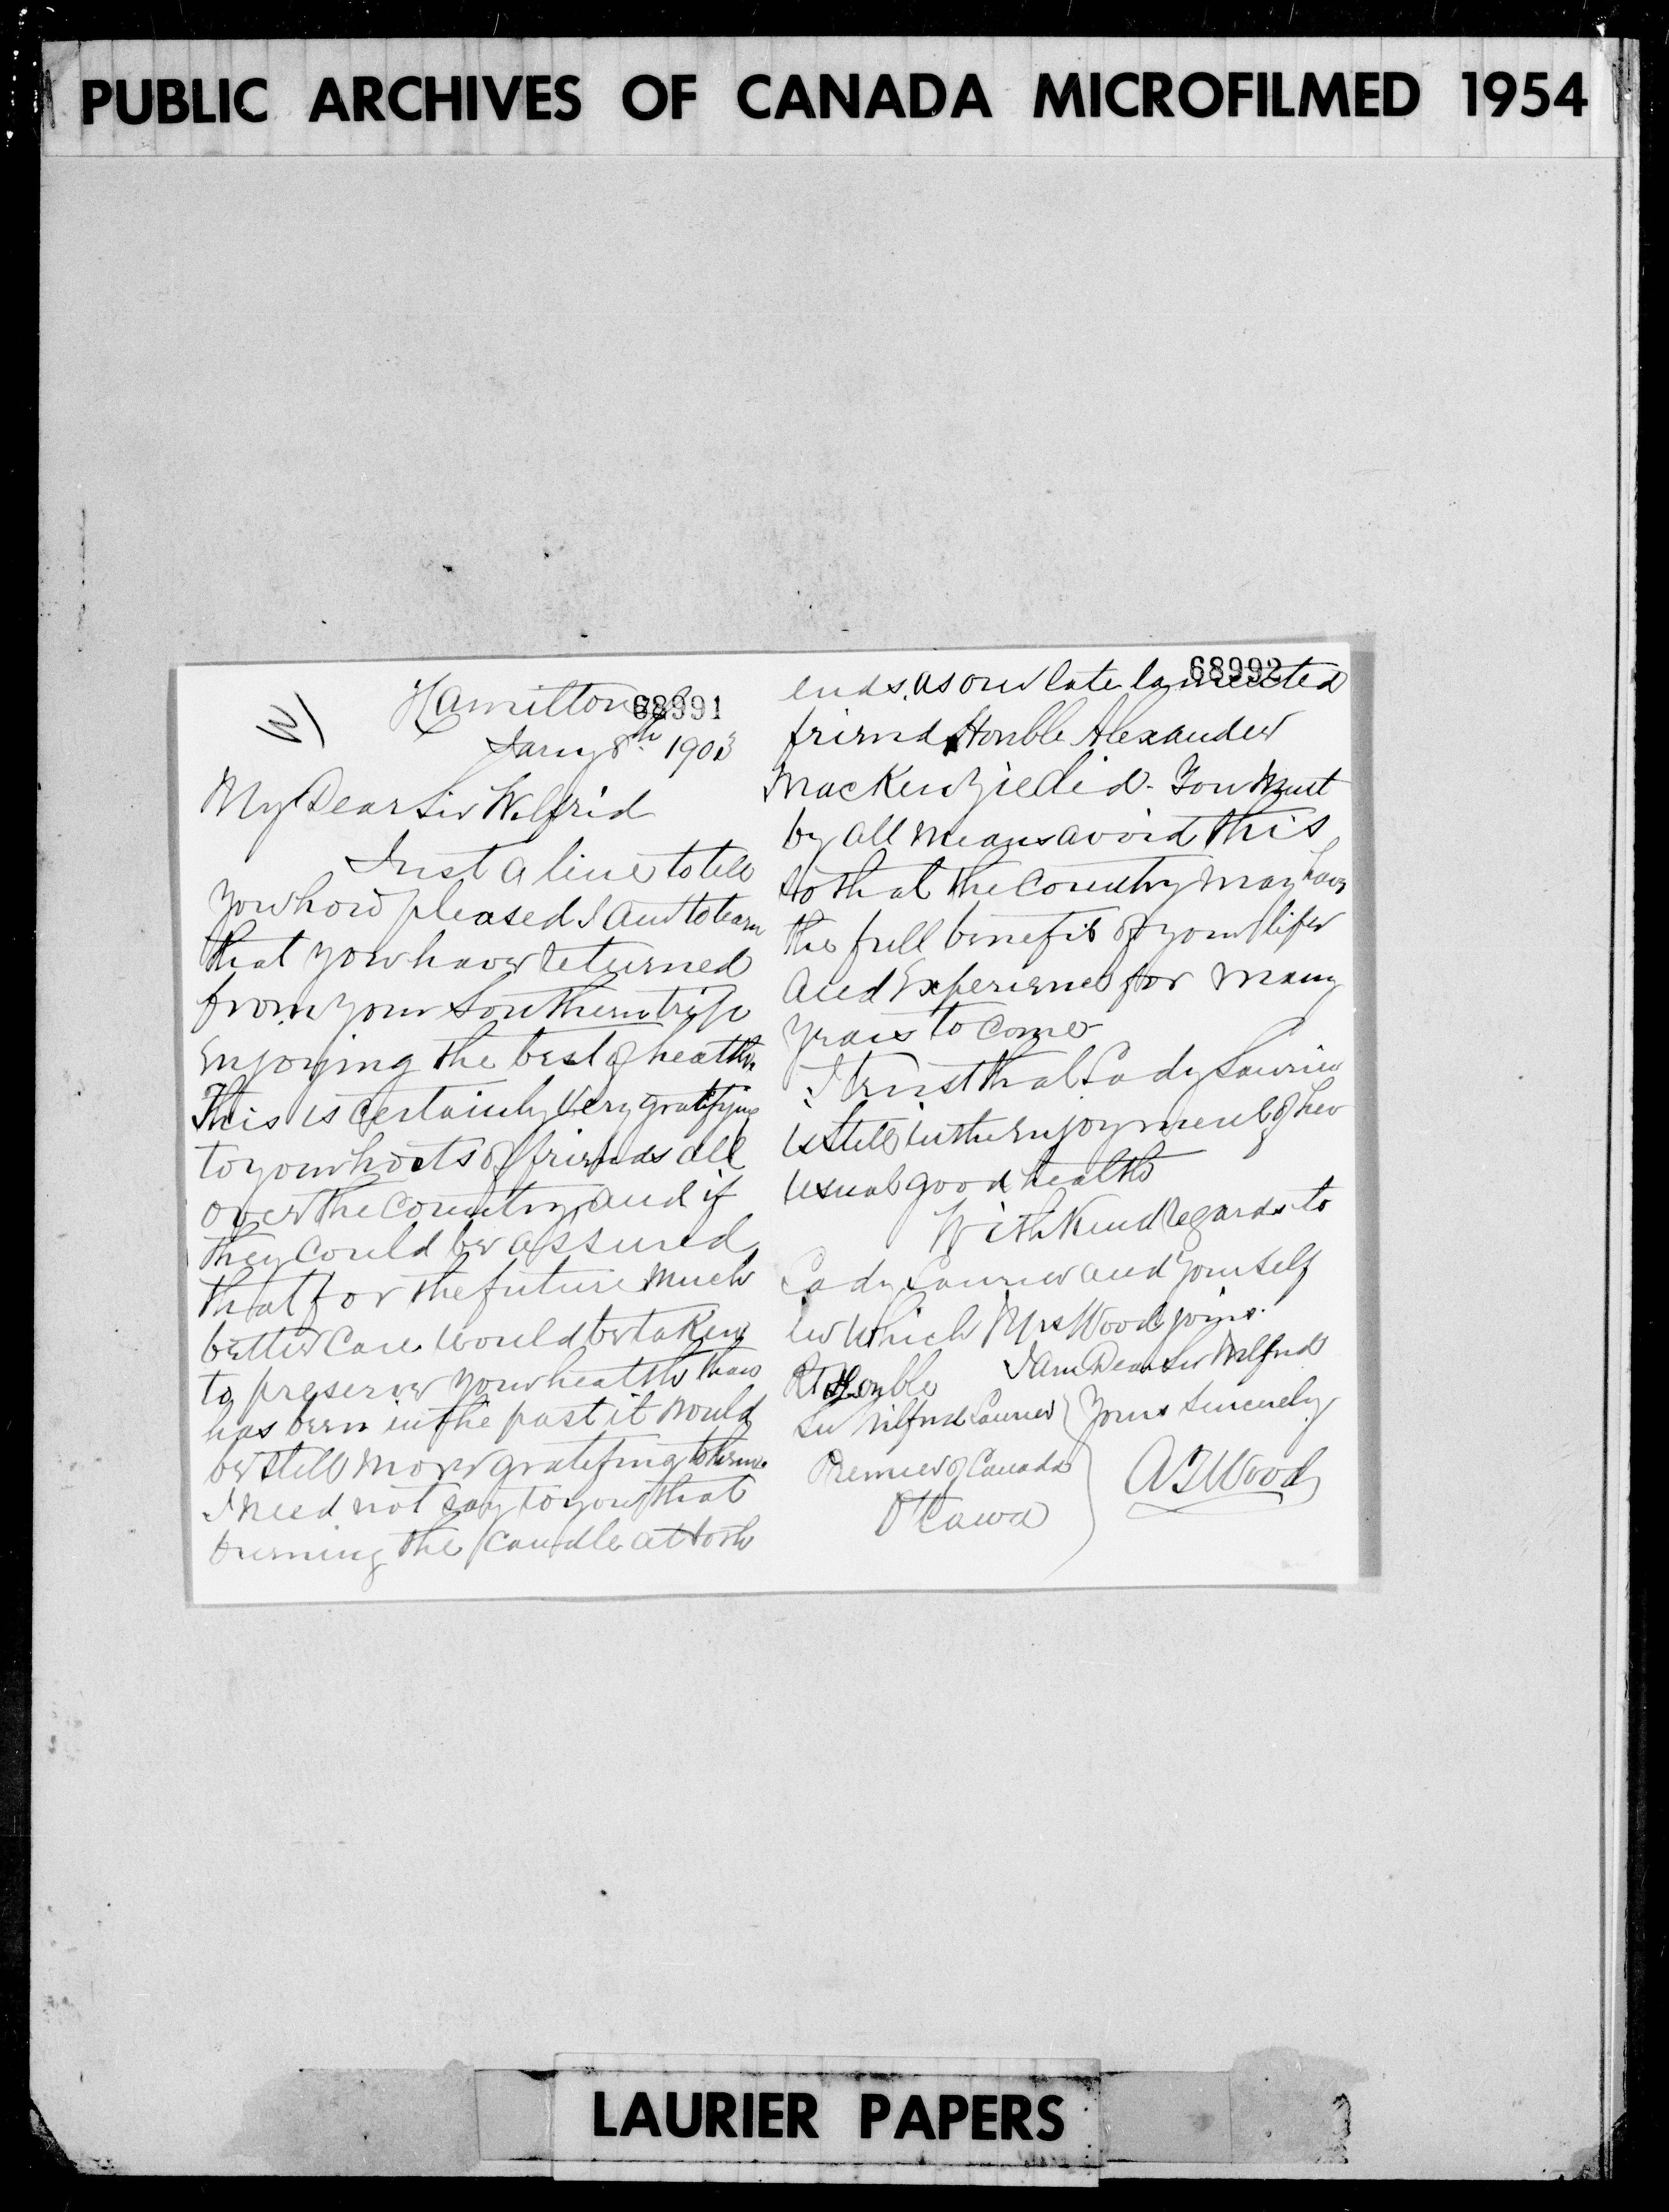 PUBLIC ARCHIVES OF CANADA MICROFILMED 1954
Hamilton
68991
Jany 8th 1903
My Dear Sir Wilfrid
Just a line to tell
you how pleased I am to learn
that you have returned
from your Southern trip
enjoying the best of health.
This is certainly very gratifying
to your hosts of friends all
over the country, and if
they could be assured
that for the future much
better care would be taken
to preserve your health than
has been in the past it would
be still more gratifing to them.
I need not say to you that
burning the candle at both
68992
ends, as our late lamented
friend Honble Alexander
MacKenzie did. You must
by all means avoid this
so that the Country may have
the full benefit of your life
and Experience for many
years to come
I trust that Lady Laurier
is still in the enjoyment of her
usual good health
With Kind Regards to
Lady Laurier and yourself
in which Mrs Wood joins.
I am Dear Sir Wilfrid
Rt Honble
Sir Wilfrid Laurier
Yours Sincerely
Premier of Canada
Ottawa
A T Wood
LAURIER PAPERS